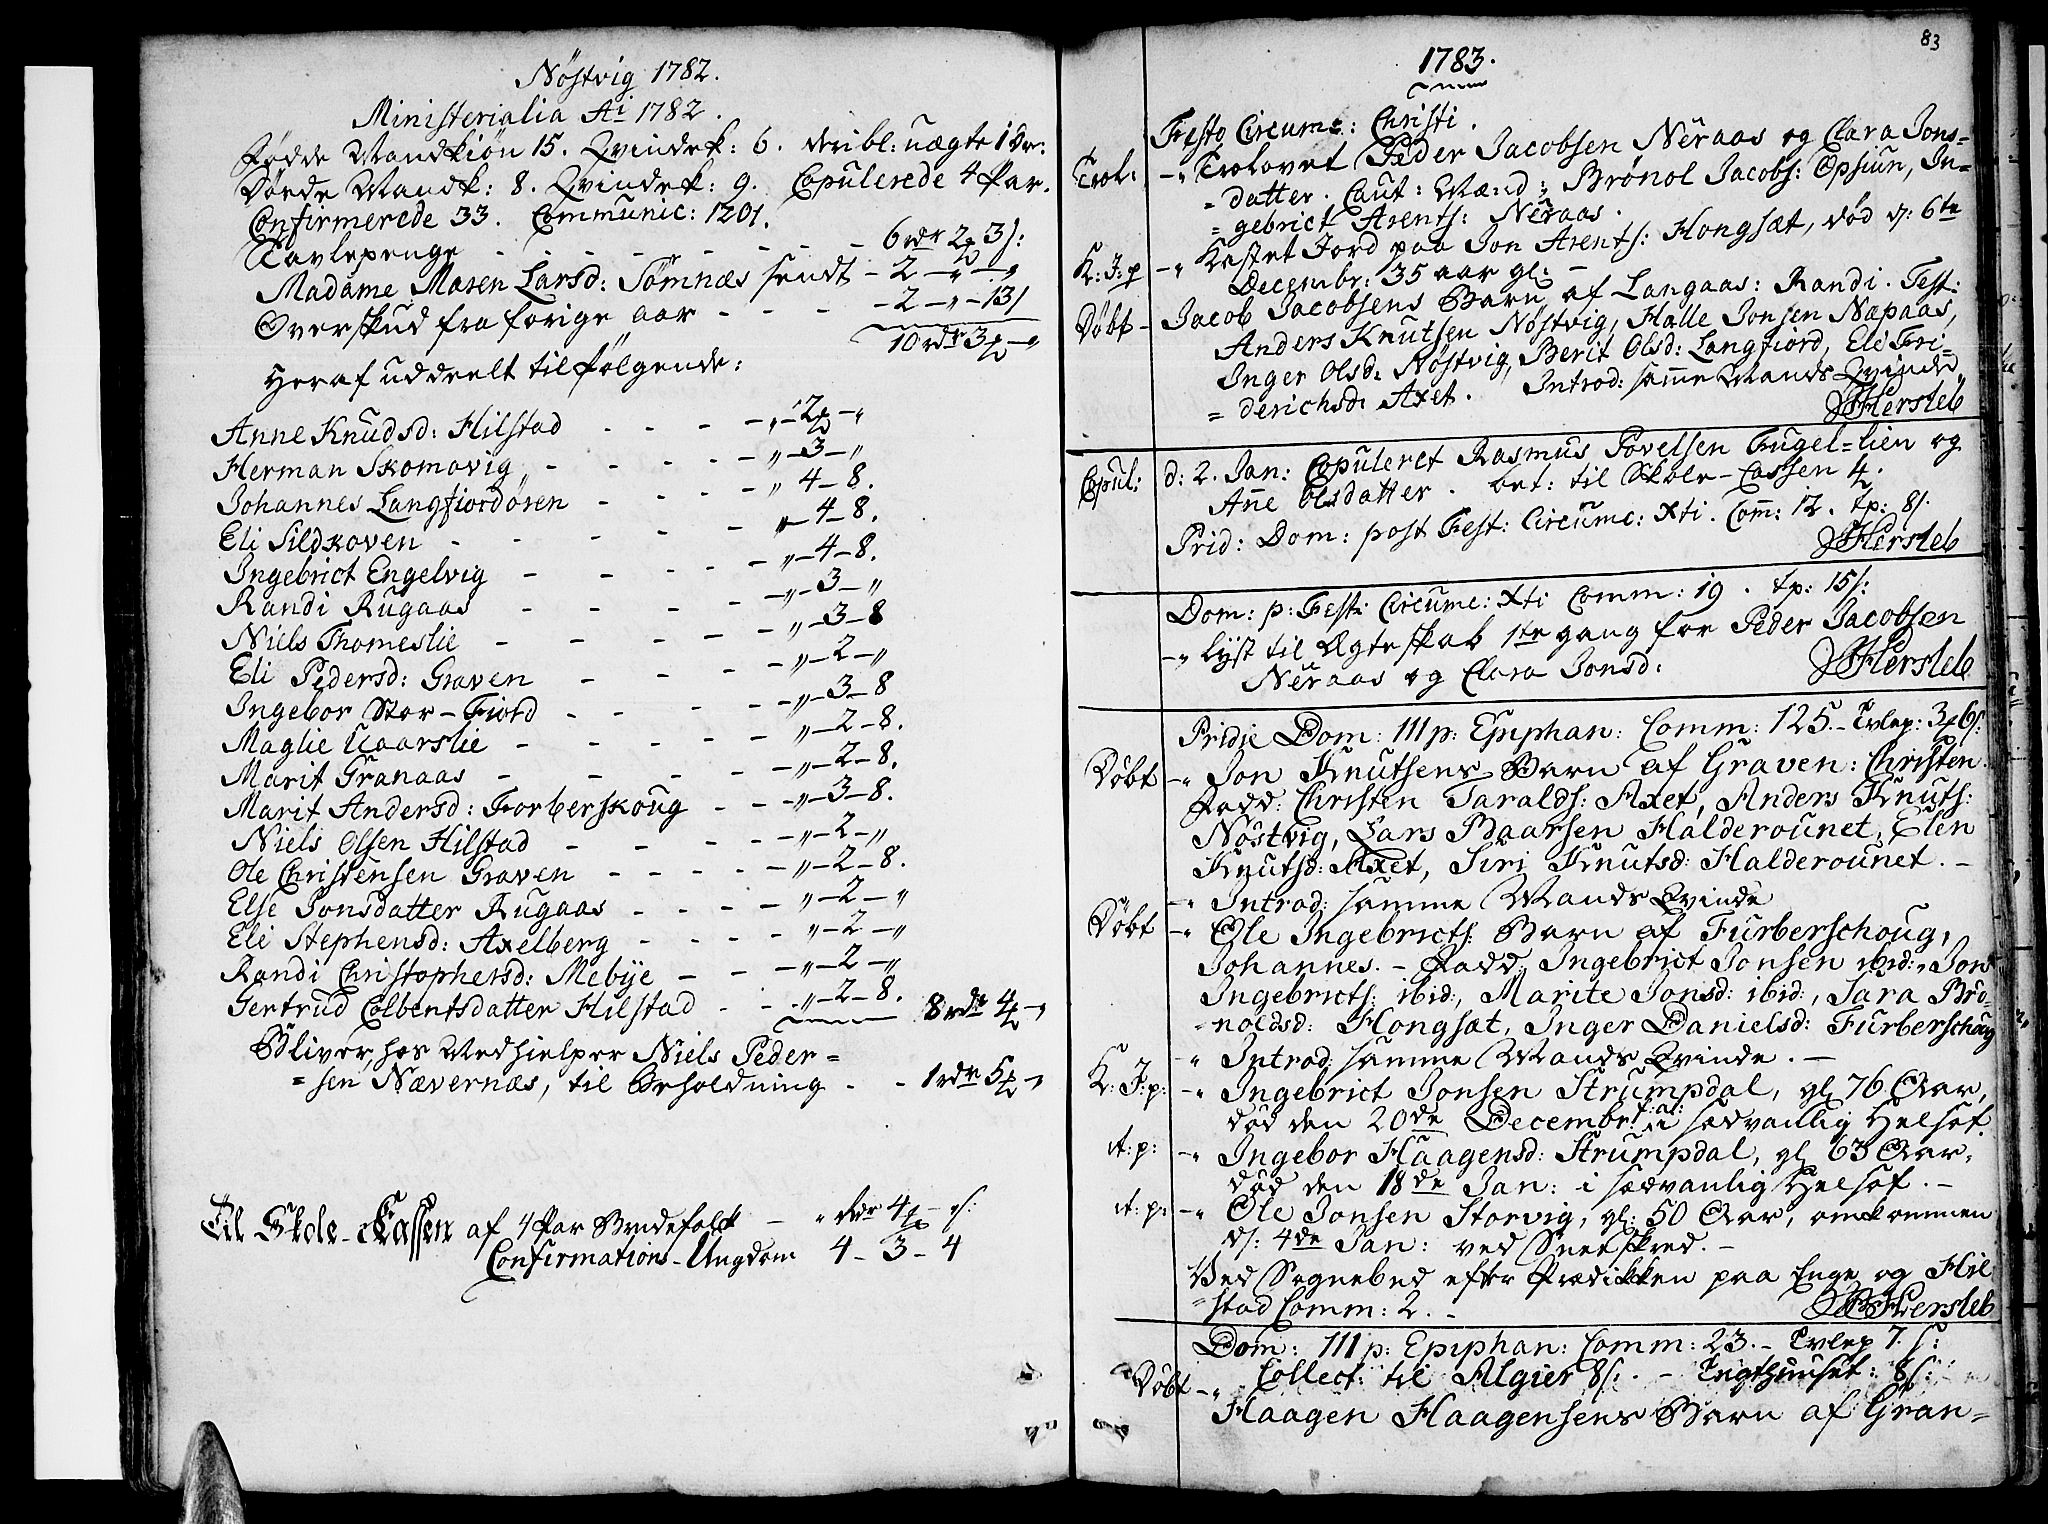 Nöstvig 1782.
Ministerialia Ai 1782.
Födde Mandkiön 15. Qvindek: 6. deribl: uægte 1 Dr:
Döede Mandk: 8. Qvindek: 9. Copulerede 4 Par.
Confirmerede 33. Communic: 1201.
Tavlepenge - - - - - - - 6 rdr 2 3 s:
Madame Maren Larsd: Sömnæs sendt - 2 - „ - „
Overskud fra forige aar - - - - 2 - „ - 13 s
10 rdr 3 - „
Heraf uddeelt til fölgende:
Anne Knudsd: Hilstad - - - - „ - 2 - „
Herman Skomovig - - - - „ - 3 - „
Johannes Langfiordören - - - - „ 4 - 8.
Eli Sildkoven - - - - - „ - 4 - 8.
Ingebrict Engelvig - - - - „ - 4 - 8.
Randi Rugaas - - - - - „ - 3 - „
Niels Thomeslie - - - - - „ - 3 - 8
Eli Pedersd: Graven - - - - „ - 2 - „
Ingebor Stor-Fiord - - - - „ - 3 - 8
Maglie Aarslie - - - - - „ - 2 - 8.
Marit Granaas - - - - - „ - 2 - 8.
Marit Andersd: Forberskoug - - - „ - 3 - 8.
Niels Olsen Hilstad - - - - - „ - 2 - „
Ole Christensen Graven - - - - „ - 2 - 8.
Else Jonsdatter Rugaas - - - - „ - 2 - „
Eli Stephensd: Axelberg - - - - „ - 2 - „
Randi Christophersd: Mebÿe - - - „ - 2 - „
Gertrud Colbentsdatter Hilstad - - - „ - 2 - 8. 8 rdr 4 - „
Bliver hos Medhielper Niels Peder=
=sen Nævernæs, til Beholdning - - 1 rdr 5 - „
Til Skole-Kassen af 4 Par Brudefolck - „ rdr 4 - s:
Confirmations-Ungdom 4 - 3 - 4
83
1783.
Festo Circumc: Christi.
Trol: -„ Trolovet Peder Jacobsen Neraas og Clara Jons=
=datter. Caut: Mænd: Brönol Jacobs: Opsiun, In=
=gebrict Arents: Neraas.
K: J: p -„ Kastet Jord paa Jon Arents: Hongsæt, död d: 6te
Decembr: 35 aar gl: -
Döbt - Jacob Jacobsens Barn af Langaas: Randi. Test:
Anders Knutsen Nöstvig, Halle Jonsen Næpaas,
Inger Olsd: Nöstvig, Berit Olsd: Langfiord, Eli Fri=
=derichsd: Axet. Introd: samme Mands Qvinde.
JHersleb
Copul: d: 2. Jan: Copuleret Rasmus Povelsen Fugel=lien og
Anne Olsdatter. bet: til Skole-Cassen 4.
Prid: Dom: post Fest: Circumc: Xti. Com: 12. tp: 8 s:
JHersleb
Dom: p: Fest: Circumc: Xti Comm: 19. tp: 15 s:
-„ Lyst til Ægteskab 1te gang for Peder Jacobsen
Neraas og Clara Jonsd:
JHersleb
Pridie Dom: III p: Epiphan: Comm: 125. - Tvlep: 3 6 s:
Döbt -„ Jon Knutsens Barn af Graven: Christen.
Fadd: Christen Taralds: Axet, Anders Knuts:
Nöstvig, Lars Baarsen Halderounet, Elen
Knutsd: Axet, Siri Knutsd: Halderounet. -
-„ Introd: samme Mands Qvinde
Döbt -„ Ole Ingebricts: Barn af Furberschoug,
Johannes. - Fadd: Ingebrict Jonsen ibid:, Jon
Ingebricts: ibid:, Marite Jonsd: ibid:, Sara Brö=
=noldsd: Hongsæt, Inger Danielsd: Furberschoug
-„ Introd: samme Mands Qvinde. -
K: J: p: -„ Ingebrict Jonsen Strumpdal, gl: 76 Aar,
död den 20de Decembr: f: a: i sædvanlig Helsot.
it: p: -„ Ingebor Haagensd: Strumpdal, gl 63 Aar,
död den 18de Jan: i sædvanlig Helsot. -
it: p: -„ Ole Jonsen Storvig, gl: 50 Aar, omkommen
d: 4de Jan: ved Sneeskred. -
Ved Sognebud efter Prædikken paa Enge og Hil
=stad Comm: 2. -
JHersleb
Dom: III p: Epiphan: Comm: 23. - Tvlep 7. s:
Collect: til Algier 8 s:. - Tugthuuset: 8 s:
Döbt -„ Haagen Haagensens Barn af Gran=